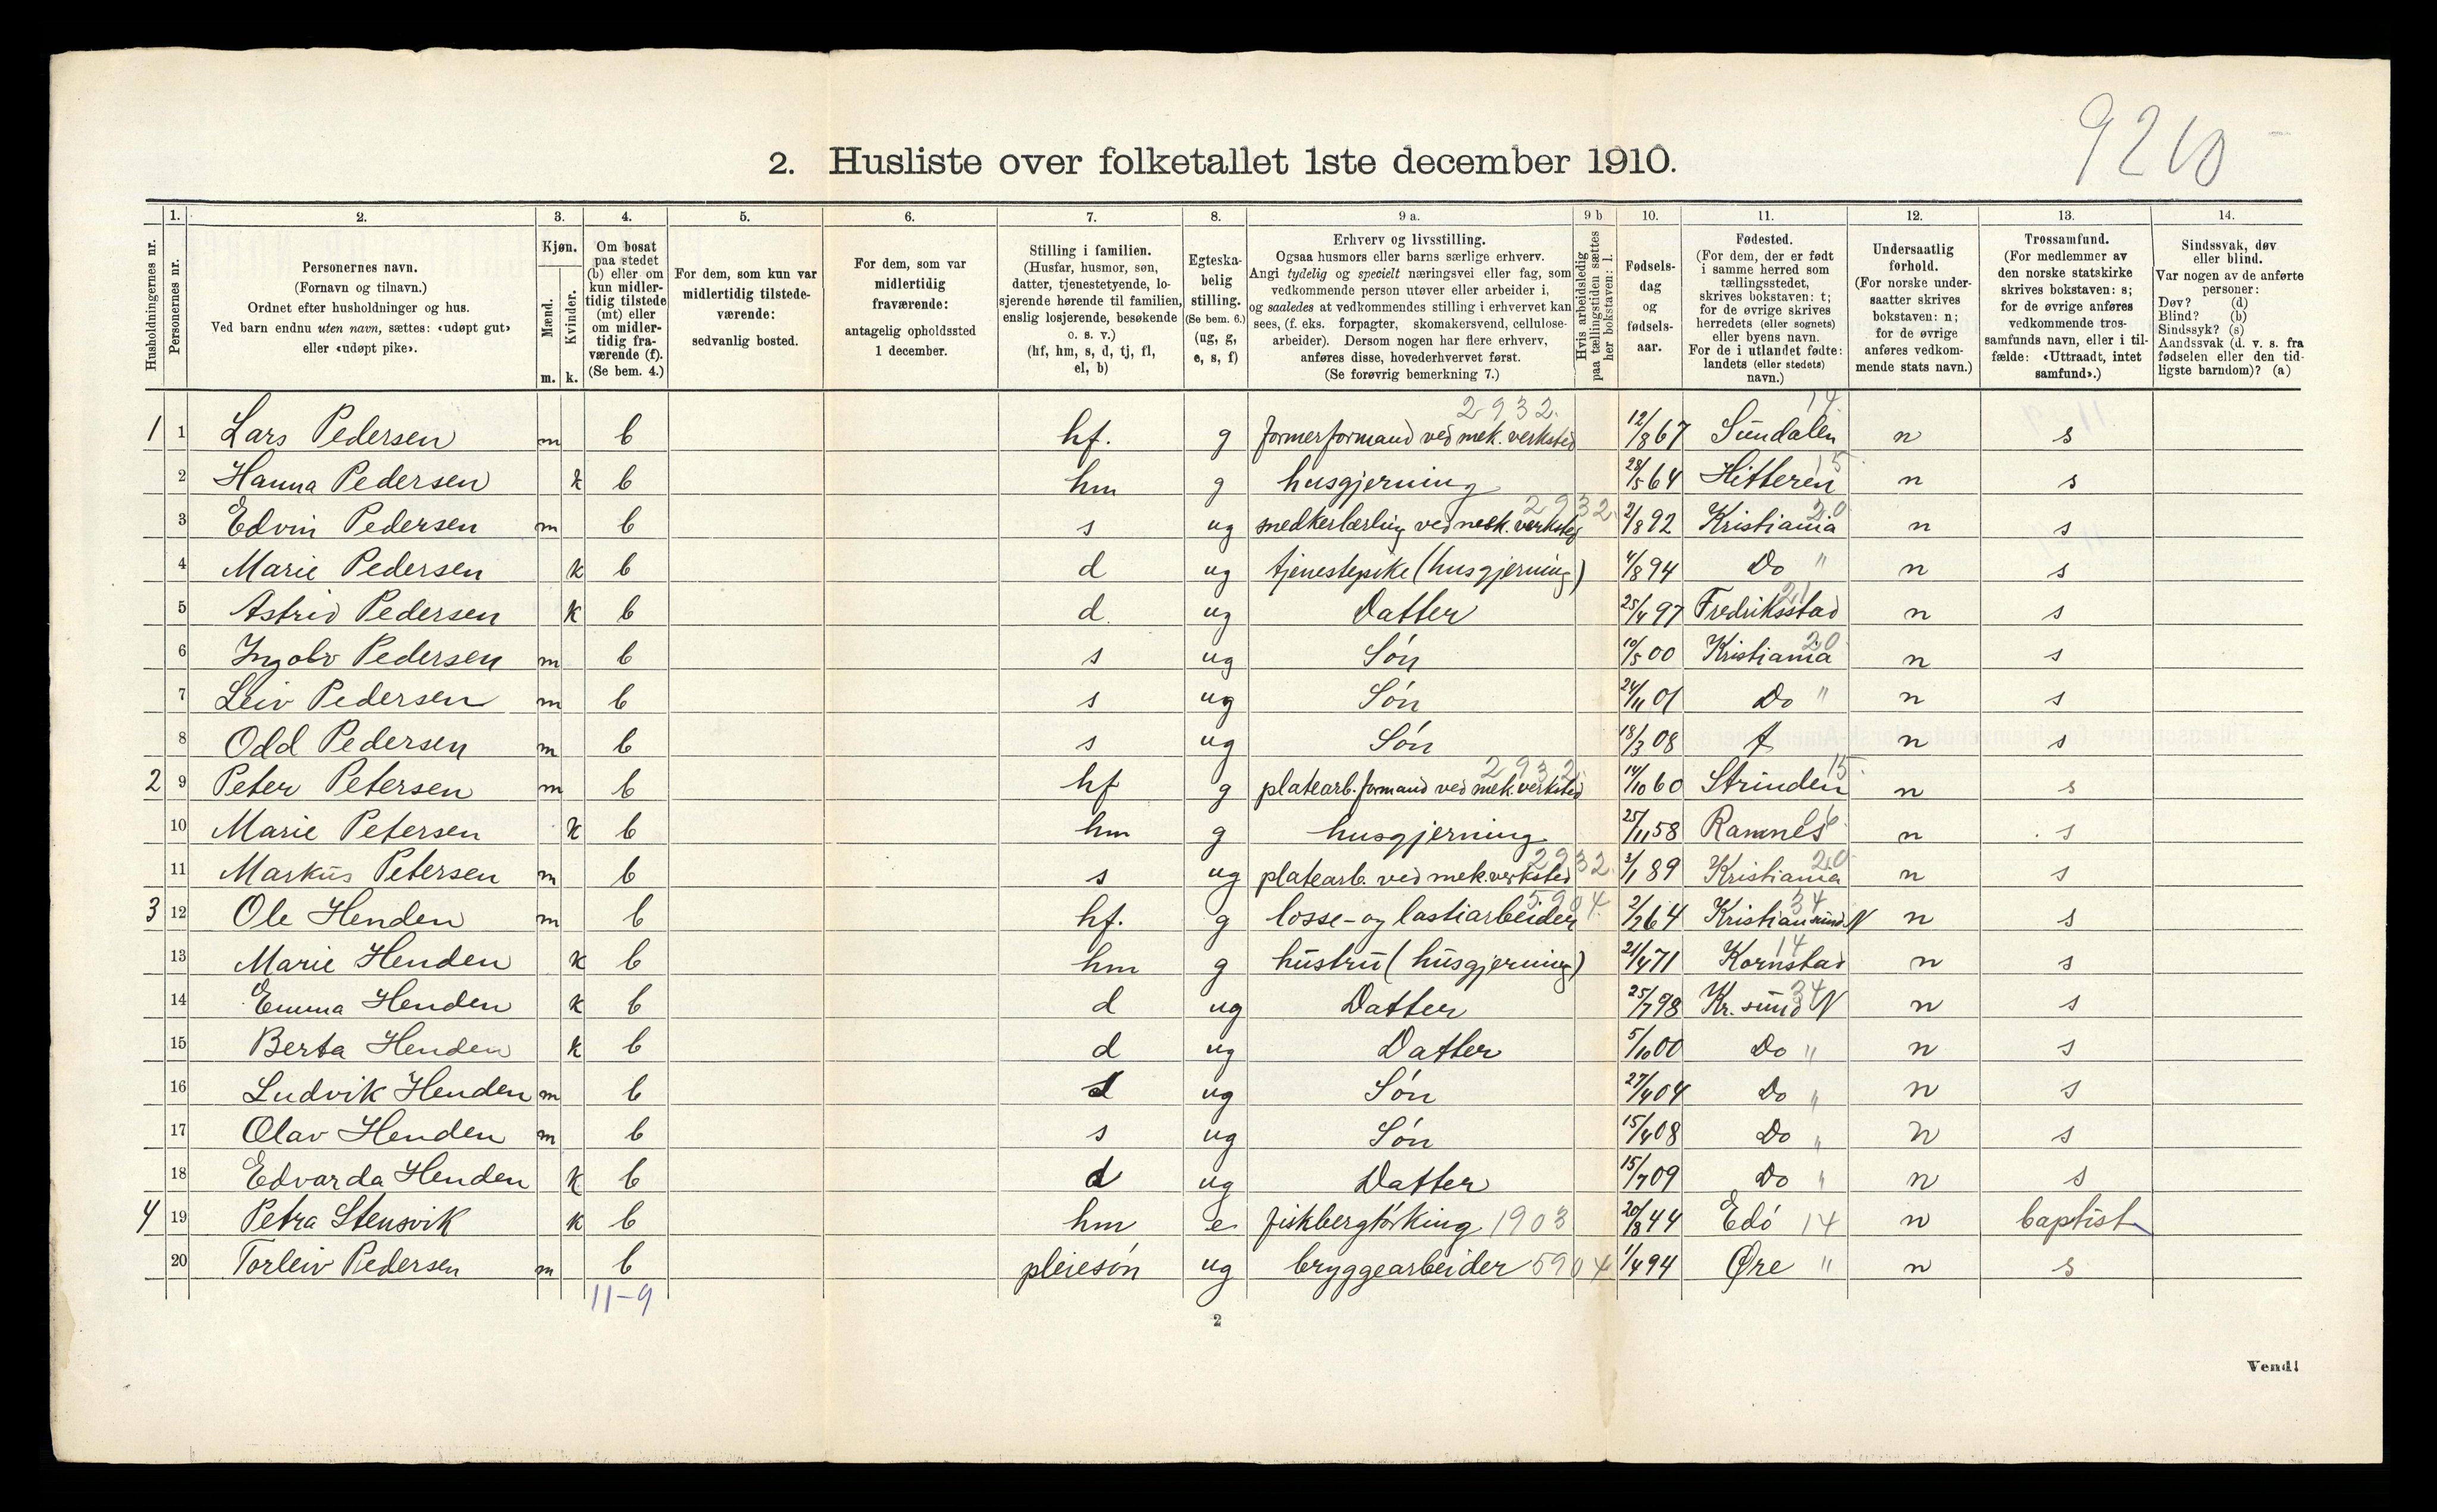 9210
2. Husliste over folketallet 1ste december 1910.
Husholdningernes nr.
1.
Personernes nr.
2.
Personernes navn.
(Fornavn og tilnavn.)
Ordnet efter husholdninger og hus.
Ved barn endnu uten navn, sættes: «udøpt gut»
eller «udøpt pike».
3.
Kjøn.
Mænd.
Kvinder.
m. k.
4.
Om bosat
paa stedet
(b) eller om
kun midler-
tidig tilstede
(mt) eller
om midler-
tidig fra-
værende (f).
(Se bem. 4.)
5.
For dem, som kun var
midlertidig tilstede-
værende:
sedvanlig bosted.
6.
For dem, som var
midlertidig
fraværende:
antagelig opholdssted
1 december.
7.
Stilling i familien.
(Husfar, husmor, søn,
datter, tjenestetyende, lo-
sjerende hørende til familien,
enslig losjerende, besøkende
o. s. v.)
(hf, hm, s, d, tj, fl,
el, b)
8.
Egteska-
belig
stilling.
(Se bem. 6.)
(ug, g,
e, s, f)
9 a.
Erhverv og livsstilling.
Ogsaa husmors eller barns særlige erhverv.
Angi tydelig og specielt næringsvei eller fag, som
vedkommende person utøver eller arbeider i,
og saaledes at vedkommendes stilling i erhvervet kan
sees, (f. eks. forpagter, skomakersvend, cellulose-
arbeider). Dersom nogen har flere erhverv,
anføres disse, hovederhvervet først.
(Se forøvrig bemerkning 7.)
9 b
Hvis arbeidsledig
paa tællingstiden sættes
her bokstaven: l.
10.
Fødsels-
dag
og
fødsels-
aar.
11.
Fødested.
(For dem, der er født
i samme herred som
tællingsstedet,
skrives bokstaven: t;
for de øvrige skrives
herredets (eller sognets)
eller byens navn.
For de i utlandet fødte:
landets (eller stedets)
navn.)
12.
Undersaatlig
forhold.
(For norske under-
saatter skrives
bokstaven: n;
for de øvrige
anføres vedkom-
mende stats navn.)
13.
Trossamfund.
(For medlemmer av
den norske statskirke
skrives bokstaven: s;
for de øvrige anføres
vedkommende tros-
samfunds navn, eller i til-
fælde: «Uttraadt, intet
samfund».)
14.
Sindssvak, døv
eller blind.
Var nogen av de anførte
personer:
Døv? (d)
Blind? (b)
Sindssyk? (s)
Aandssvak (d. v. s. fra
fødselen eller den tid-
ligste barndom)? (a)
2932. 14
1 1 Lars Pedersen m b hf. g formerformand ved mek. verksted 12/8 67 Sundalen n s
15
2 Hanna Pedersen k b hm g husgjerning 28/5 64 Hitteren n s
2932 20
3 Edvin Pedersen m b s ug snedkerlærling ved mek. verksted 2/8 92 Kristiania n s
4 Marie Pedersen k b d ug tjenestepike (husgjerning) 4/8 94 Do " n s
21
5 Astrid Pedersen k b d. ug Datter 25/4 97 Fredriksstad n s
20
6 Ingolv Pedersen m b s ug Søn 10/5 00 Kristiania n s
7 Leiv Pedersen m b s ug Søn 24/11 01 Do " n s
8 Odd Pedersen m b s ug Søn 18/3 08 t n s
2932 15
2 9 Peter Petersen m b hf g platearb. formand ved mek. verksted 14/10 60 Strinden n s
6
10 Marie Petersen k b hm g husgjerning 25/11 58 Ramnes n s
2932. 20
11 Markus Petersen m b s ug platearb. ved mek. verksted 3/1 89 Kristiania n s
5904. 34
3 12 Ole Henden m b hf. g losse- og lastiarbeider 2/2 64 Kristiansund N n s
14
13 Marie Henden k b hm g hustru (husgjerning) 21/4 71 Kornstad n s
34
14 Emma Henden k b d ug Datter 25/7 98 Kr. sund N n s
15 Berta Henden k b d ug Datter 5/10 00 Do " n s
16 Ludvik Henden m b s ug Søn 27/4 04 Do " n s
17 Olav Henden m b s ug Søn 15/4 08 Do " n s
18 Edvarda Henden k b d ug Datter 15/7 09 Do " n s
4 19 Petra Stensvik k b hm e fiskbergtørking 1903 20/8 44 Edö 14 n baptist
20 Torleiv Pedersen m b pleiesön ug bryggearbeider 5904 1/4 94 Øre " n s
11-9
2
Vend!